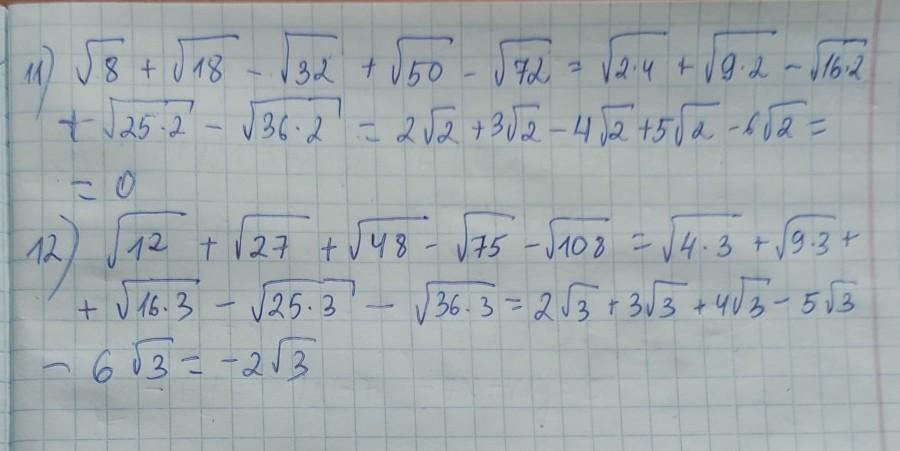 11) √8 + √18 - √32 + √50 - √72 = √2·4 + √9·2 - √16·2
+ √25·2 - √36·2 = 2√2 + 3√2 - 4√2 + 5√2 - 6√2 =
= 0
12) √12 + √27 + √48 - √75 - √108 = √4·3 + √9·3 +
+ √16·3 - √25·3 - √36·3 = 2√3 + 3√3 + 4√3 - 5√3
- 6√3 = -2√3